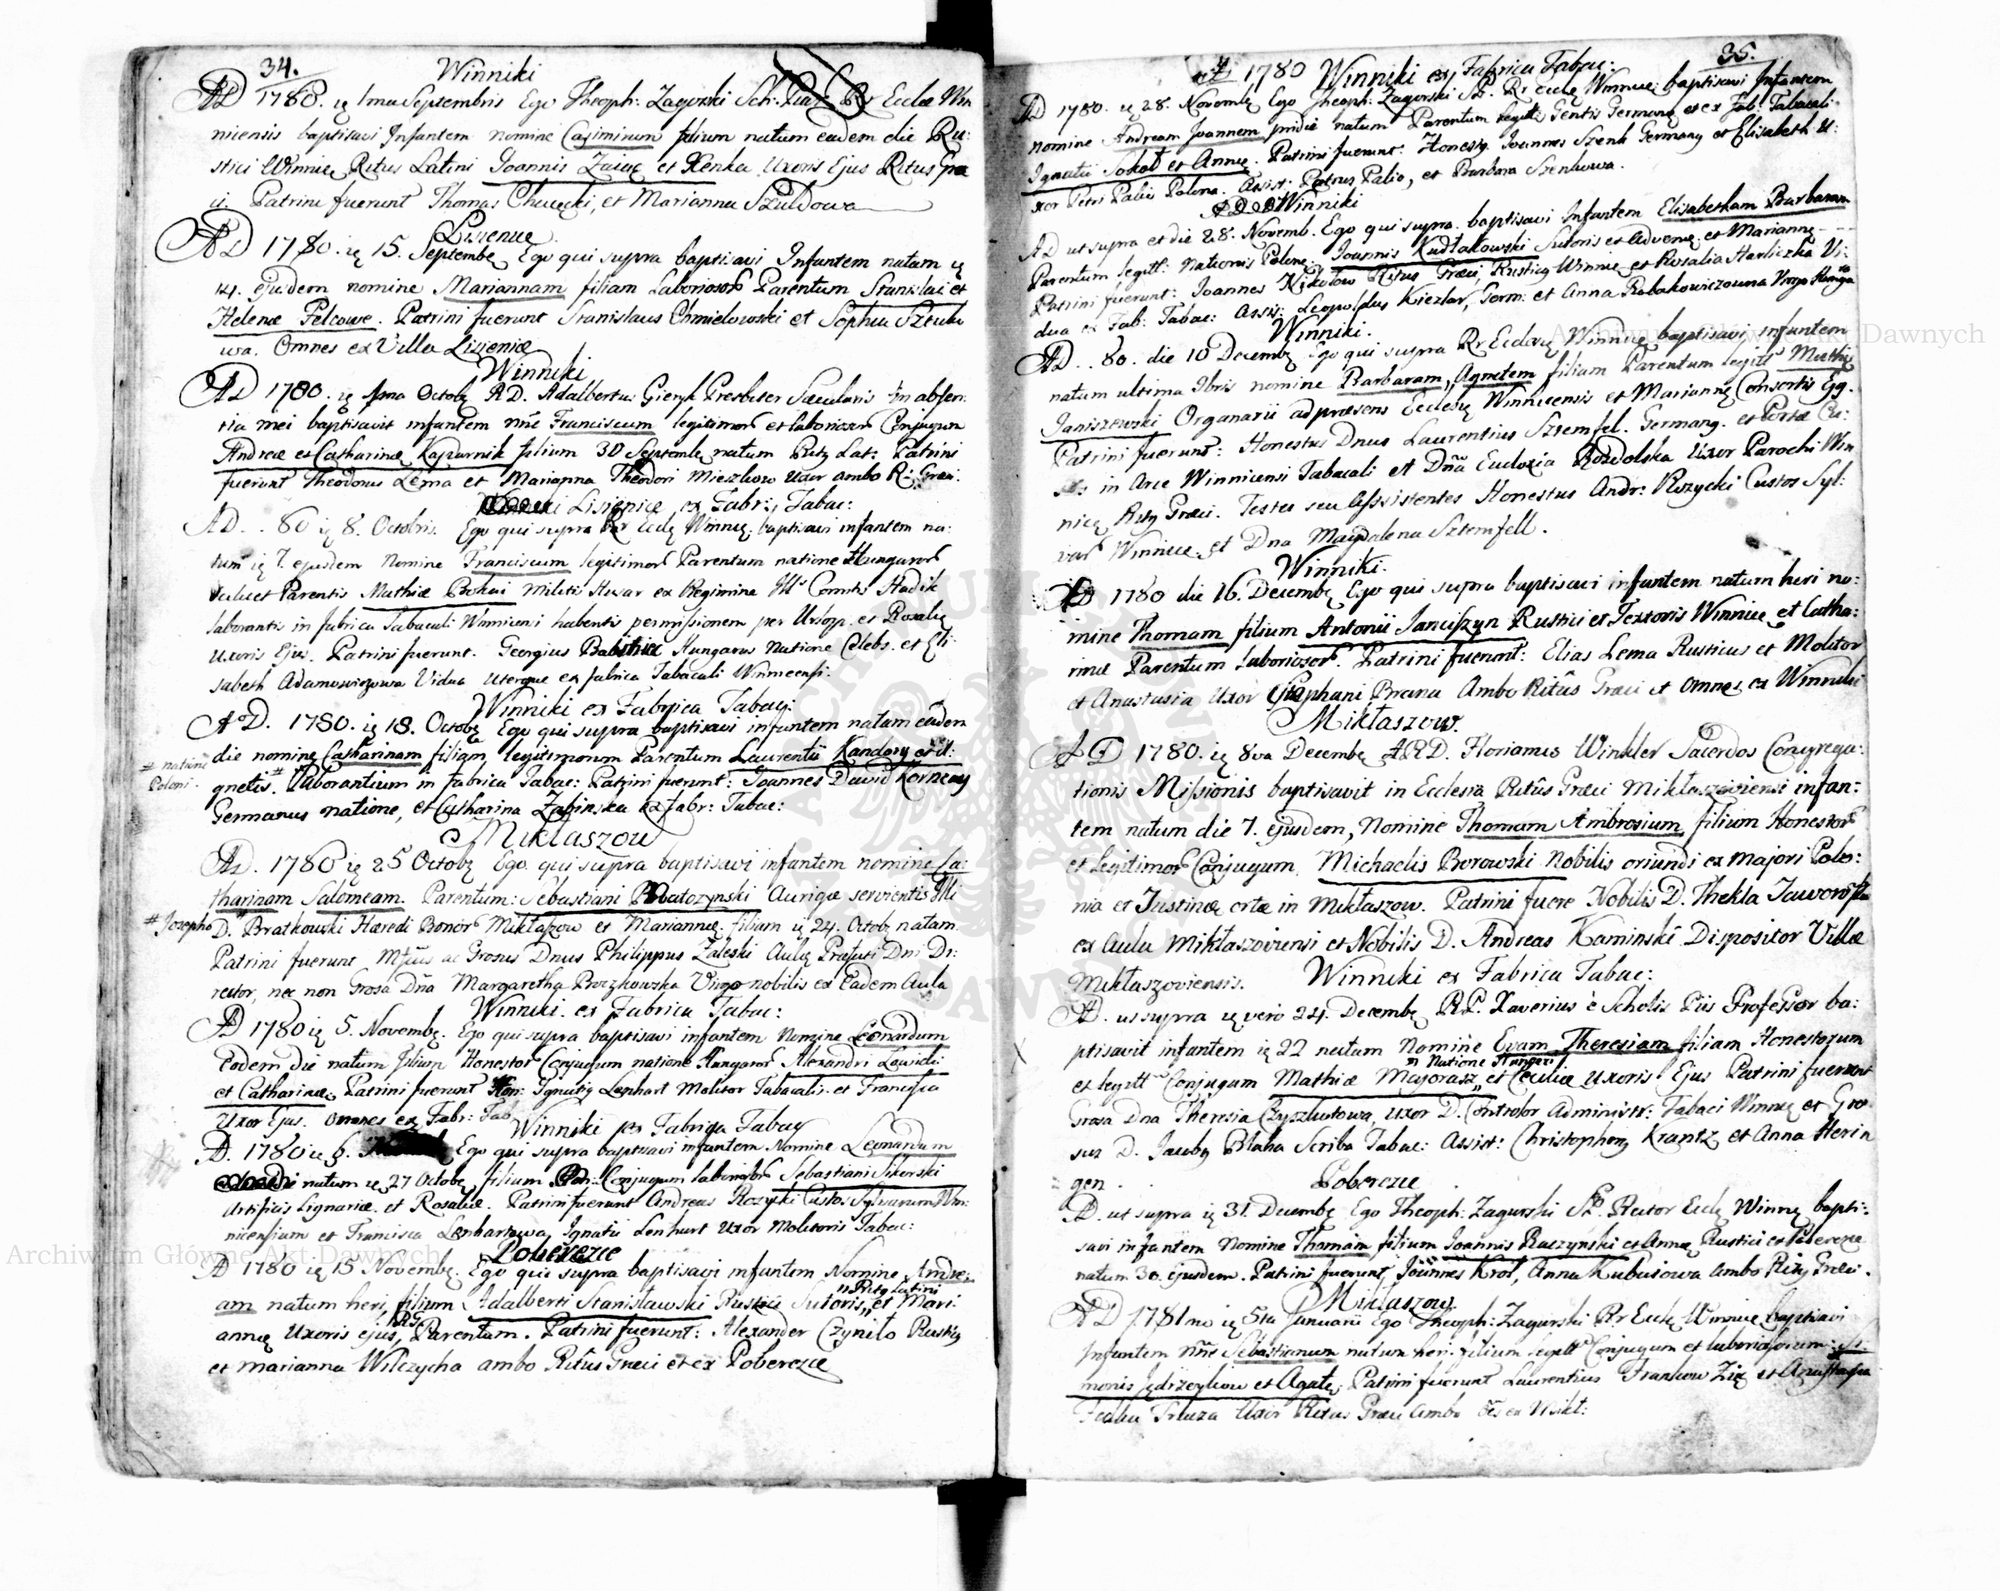 34.
Winniki
AD 1780. ię 1ma Septembris Ego Theoph: Zagorski Sch: Rr Eccłæ Win
niensis baptisavi Infantem nomine Casimirum filium natum eadem die Ru:
stici Winnię Ritus Latini Joannis Zaiąc et Xenka Uxoris Ejus Ritus Græ
ci. Patrini fuerunt Thomas et Marianna Szuldowa
Lisienicę
AD 1780. ię 15. Septembę Ego qui supra baptisavi Infantem natum ię
14. ejusdem nomine Mariannam filiam Laboriosor Parentum Stanislai et
Helenæ Felcowe. Patrini fuerunt Stanislaus Chmielowski et Sophia
wa. Omnes ex Villa Lisienicæ
Winniki
AD 1780. ię Octobę RD. Adalbertus Gieryk Presbiter Sæcularis in absen
tia mei baptisavit infantem nñe Franciscum legitimor et laborioser Conjugum
Andreæ et Catharinæ Kaznurnik filium 30 Septembę natum Rity Lat: Patrini
fuerunt Theodorus Lema et Marianna Theodori Mieszkow Uxor ambo R: Græci.
Lisienicæ ex Fabr: Tabac:
AD. . 80 ię 8. Octobris. Ego qui supra Rr Eccłę Winnię: baptisavi infantem na:
tum ię 7. ejusdem Nomine Franciscum legitimor Parentum natione Hungaror
Parentis Mathiæ Militis Husar ex Regimine Comitis Hadik
laborantis in fabrica Tabacali Winniensi habentis permissionem per et Rosalię
Uxoris Ejus. Patrini fuerunt. Georgius Hungarus Natione Celebs. et Eli
sabeth Adamowiczowa Vidua uterque ex fabrica Tabacali Winnicensi.
Winniki ex Fabrica Tabac:
AoD. 1780. ię 18. Octobę Ego qui supra baptisavi infantem natam eadem
die nomine Catharinam filiam legitimorum Parentum Laurentii Kandory et A:
# natione Poloni.
gnetis. # Laborantium in fabrica Tabac: Patrini fuerunt: Joannes David
Germanus natione, et Catharina Zabinska ex Fabr: Tabac:
Mikłaszow
AD. 1780 ię 25 Octobę Ego qui supra baptisavi infantem nomine Ca:
tharinam Salomeam. Parentum: Sebastiani Aurigæ servientis
# Josepho
D. # Bratkowski Hæredi Bonor Mikłaszow et Mariannę. filiam ię 24. Octobę natam.
Patrini fuerunt ac Grosus Dnus Philippus Zaleski Aulæ Præfati Dni Di:
rector, nec non Grosa Dña Margaretha Virgo nobilis ex Eadem Aula
Winniki. ex Fabrica Tabac:
AD 1780 ię 5. Novembę. Ego qui supra baptisavi infantem Nomine Leonardum
Eodem die natum filium Honestor Conjugum natione Hungaror Alexandri
et Catharinæ. Patrini fuerunt Hon: Ignatiy Lenhart Molitor Tabacalis et Francisca
Uxor Ejus. omnes ex Fabr: Tab
Winniki ex Fabrica Tabac
AD. 1780 ię Ego qui supra baptisavi infantem Nomine Leonardum
natum ię 27 Octobę filium Conjugum laborioser Sebastiani Sikorski
Artificis Lignariæ et Rosaliæ. Patrini fuerunt Andreas Rozycki Custos Sylvarum Win:
nicensium et Francisca Lenhartowa Ignatii Lenhart Uxor Molitoris Tabac:
Poberezie
AD 1780 ię 15 Novembę. Ego qui supra baptisavi infantem Nomine Andre:
am natum heri, filium Adalberti Stanisławski Rustici Sutoris, et Mari:
Rity Latini
annę Uxoris ejus, Parentum. Patrini fuerunt: Alexander Czyniło Rusticy
et Marianna Wilczycha ambo Ritûs Græci et ex Poberezie
35.
1780 Winniki ex Fabrica Tabac:
AD 1780. ię 28. Novembę Ego Theoph: Zagorski Rr Eccłę Winnię: baptisavi Infantem
nomine Andream Joannem pridie natum Parentum legitt: Gentis Germanę et ex Fab: Tabacali
Ignatii Sokol et Annę. Patrini fuerunt: Honesty Joannes Szenk Germany et Elisabeth U:
xor Petri Palio Polona. Assist: Petrus Palio, et Barbara Szenkowa.
Winniki
AD ut supra et die 28. Novemb. Ego qui supra baptisavi Infantem Elisabetham Barbaram
Parentum legitt: Nationis Polonę: Joannis Kudłakowski Sutoris et Advenę et Mariannę
Patrini fuerunt: Joannes Nikołow Ritus Græci, Rusticy Winnię et Rosalia Harliczka Vi:
dua ex Fab: Tabac: Assis: Leopoldus Kiezlar, Germ: et Anna Rabakowiczowna Virgo
Winniki.
AD . . 80. die 10 Decembę Ego qui supra Rr Eccłę Winnię baptisavi infantem
natum ultima Xbris nomine Barbaram, Agnetem filiam Parentum legitt: Mathię
Janiszewski Organarii ad præsens Eccłesię Winnicensis et Mariannę Consortis Ejg.
Patrini fuerunt: Honestus Dnus Laurentius Sztemfel. Germang. et Portæ Cu:
in Arce Winniensi Tabacali et Dña Eudoxia Rozdolska Uxor Parochi Win
nicę Rity Græci. Testes seu Assistentes Honestus Andr: Rozycki Custos Syl:
var Winnicę et Dna Magdalena Sztemfell.
Winniki.
AD 1780 die 16. Decembę Ego qui supra baptisavi infantem natum heri no:
mine Thomam filium Antonii Janciszyn Rustici et Textoris Winnice et Catha:
rinæ Parentum Laborioser. Patrini fuerunt: Elias Lema Rusticus et Molitor
et Anastasia Uxor Stephani Brana Ambo Ritûs Græci et Omnes ex Winniki
Mikłaszow.
AD 1780. ię 8va Decembę ARD. Florianus Winkler Sacerdos Congrega:
tionis Missionis baptisavit in Ecclesia Ritûs Græci Mikłaszoviensi infan:
tem natum die 7. ejusdem, Nomine Thomam Ambrosium filium Honestor
et legitimor Conjugum. Michaelis Borowski Nobilis oriundi ex majori Polo:
nia et Justinæ ortæ in Mikłaszow. Patrini fuere Nobilis D. Thekla Jaworska
ex Aula Mikłaszoviensi et Nobilis D. Andreas Kaminski Dispositor Villæ
Mikłaszoviensis. Winniki ex Fabrica Tabac:
AD. ut supra ię vero 24. Decembę R.P. Xaverius è Scholis Piis Professor ba:
ptisavit infantem ię 22 natum Nomine Evam Theresiam filiam Honestorum
Natione Hungari
et legitt: Conjugum Mathiæ Majorasz, et Cæciliæ Uxoris Ejus Patrini fuerunt
Grosa Dna Theresia Uxor D. Controlor Administr: Tabaci Winnię et Gro
sus D. Jacoby Blaha Scriba Tabac: Assist: Christophory Krantz et Anna Herin
gen.
Poberezie
AD. ut supra ię 31. Decembę Ego Theoph: Zagurski Rector Eccłę Winnię bapti:
savi infantem Nomine Thomam filium Joannis Raczynski et Annę Rustici et Poberezie
natum 30. ejusdem. Patrini fuerunt, Joannes Krol, Anna Kubusiowa ambo Rity Græci.
Mikłaszow
AD 1781mo ię 5ta Januarii Ego Theoph: Zagurski Rr Eccłę Winnię baptisavi
Infantem nñe Sebastianum natum heri filium legitt: Conjugum et laboriosorum: Si:
monis et Agatę. Patrini fuerunt Laurentius Frankow Zię et Anastasia
Uxor Ritus Græci ambo ex Mikł:
Archiwum Główne Akt Dawnych
Archiwum Główne Akt Dawnych